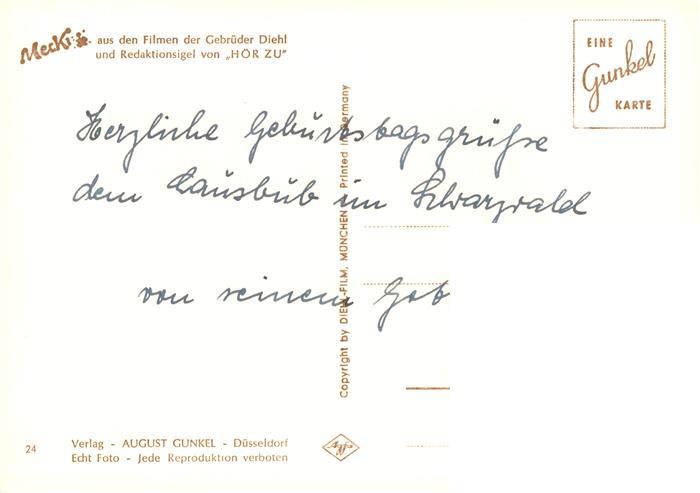 Mecki aus den Filmen der Gebrüder Diehl
und Redaktionsigel von „HÖR ZU"
EINE
Gunkel
KARTE
Herzliche Geburtstagsgrüße
dem Lausbub im Schwarzwald
von seinem
Copyright by DIEHL-FILM, MÜNCHEN Printed in Germany
24
Verlag - AUGUST GUNKEL - Düsseldorf
Echt Foto - Jede Reproduktion verboten
Agfa